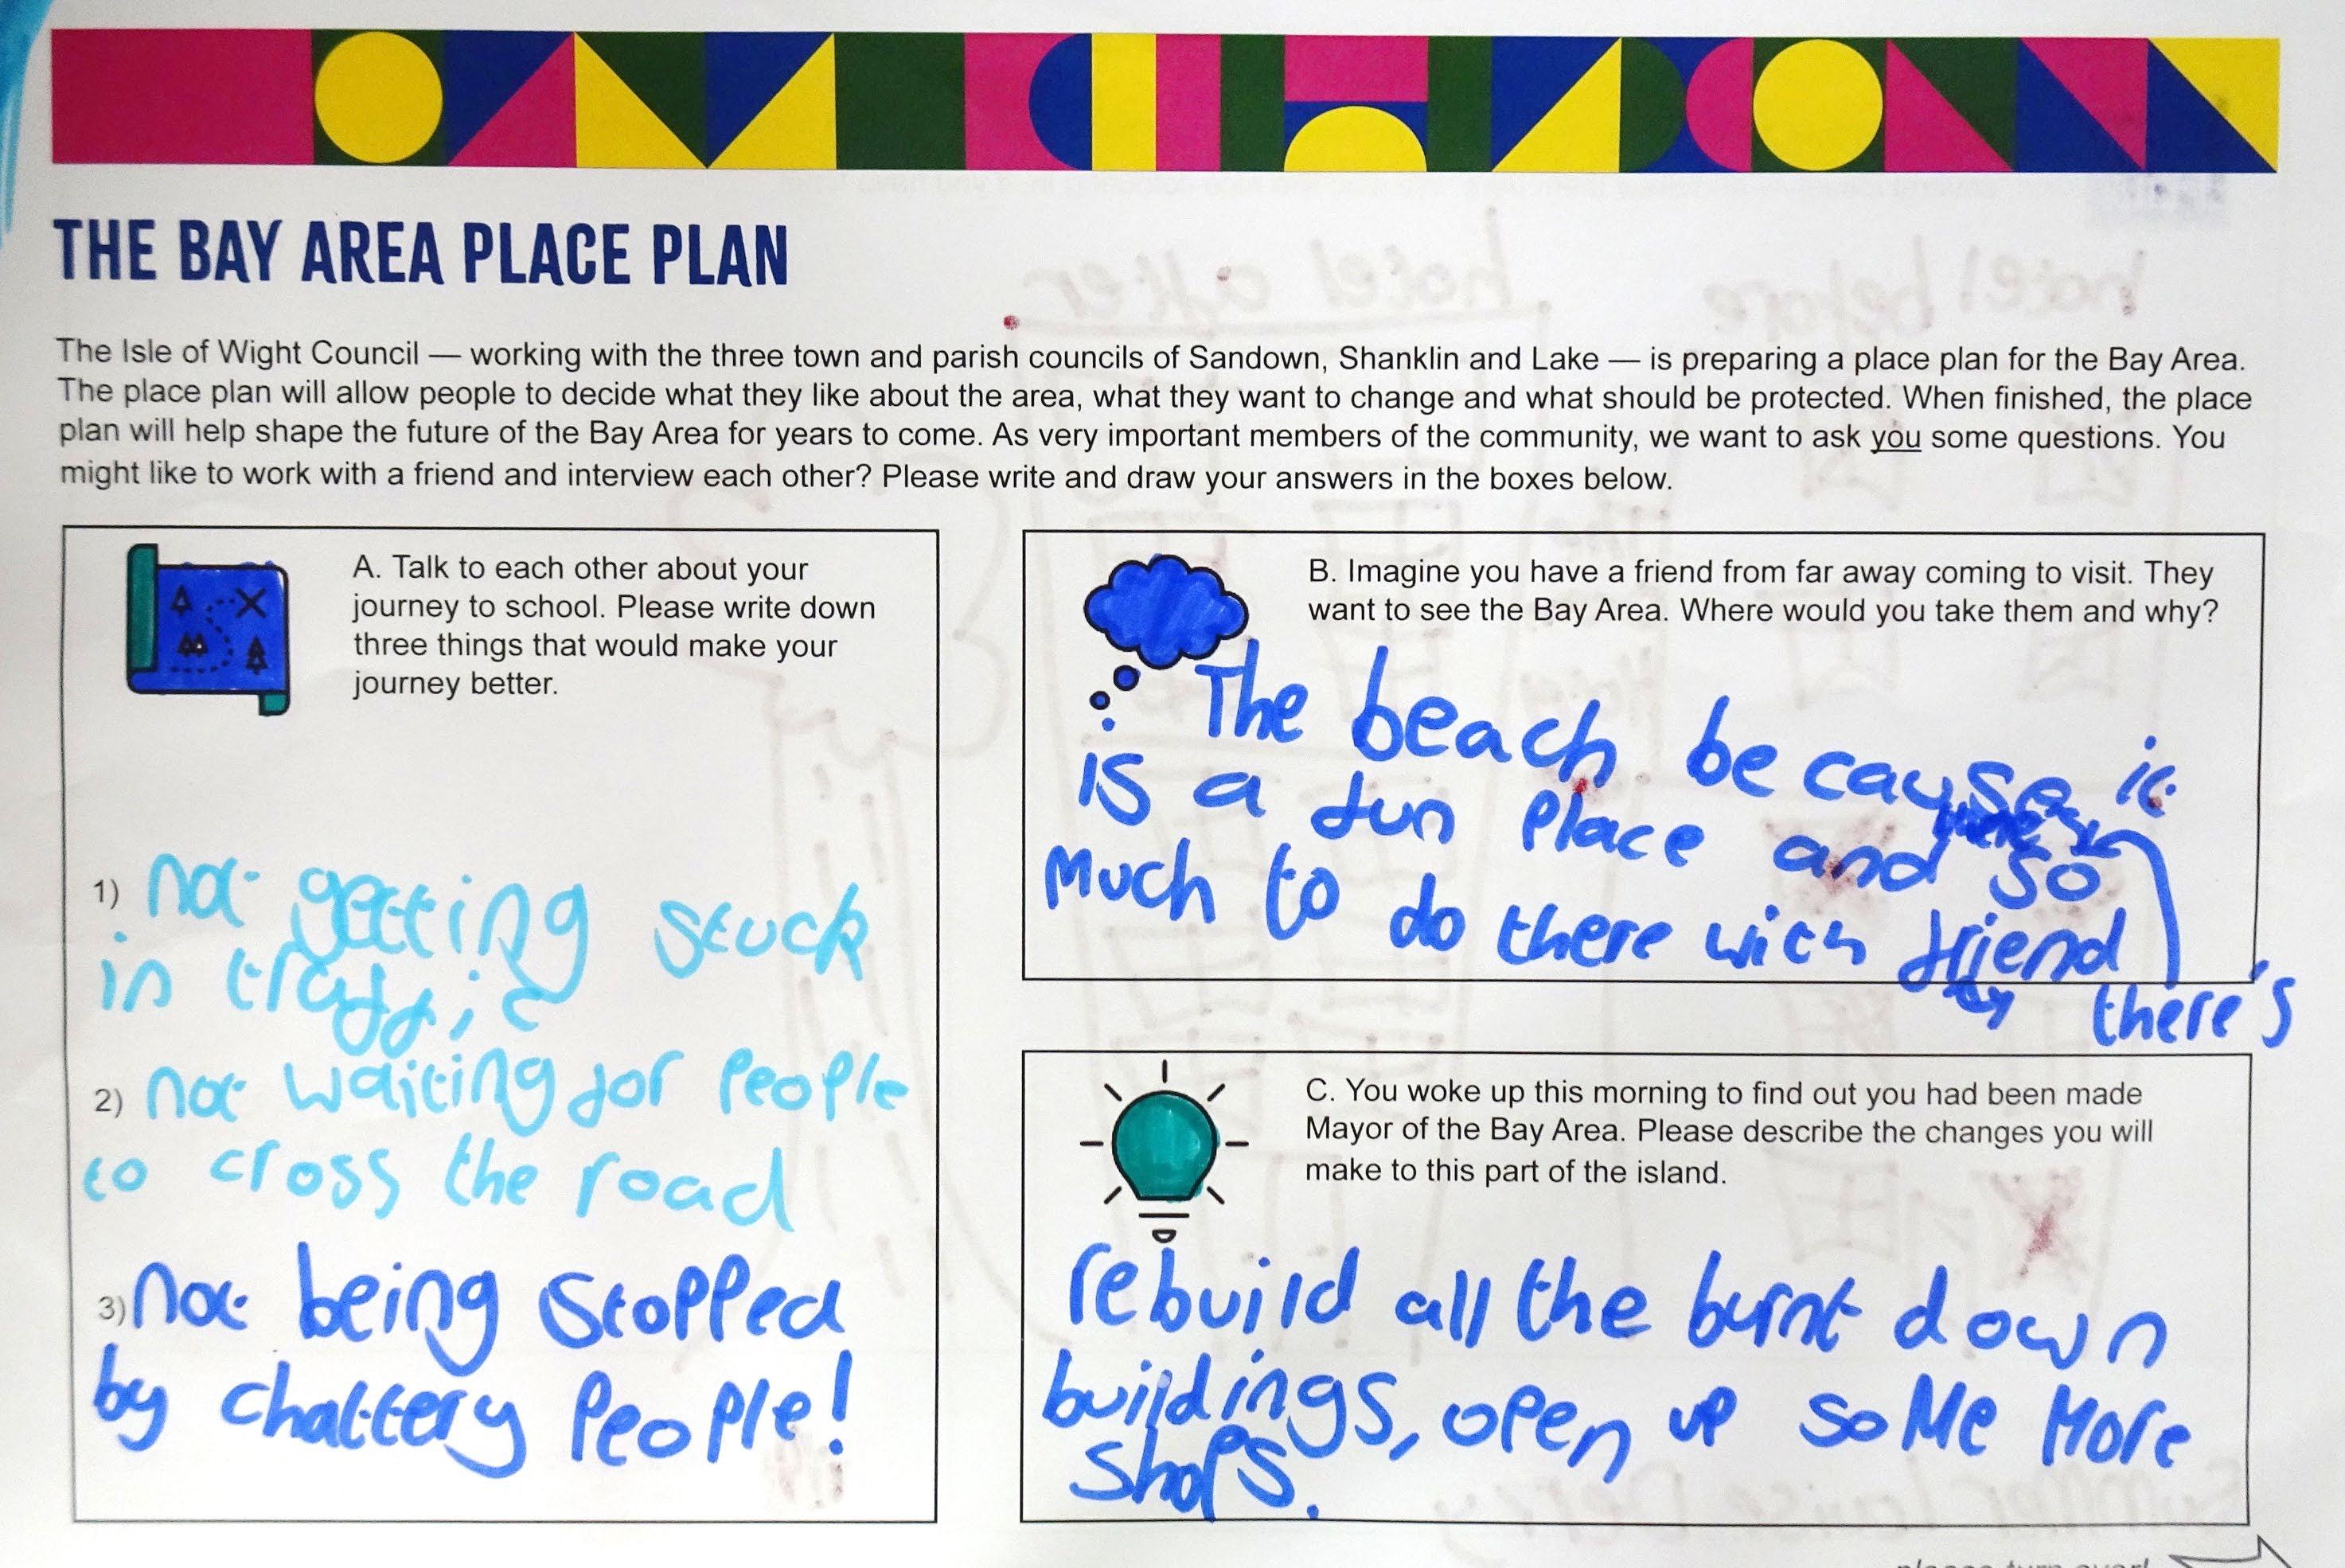 THE BAY AREA PLACE PLAN
The Isle of Wight Council — working with the three town and parish councils of Sandown, Shanklin and Lake — is preparing a place plan for the Bay Area.
The place plan will allow people to decide what they like about the area, what they want to change and what should be protected. When finished, the place
plan will help shape the future of the Bay Area for years to come. As very important members of the community, we want to ask you some questions. You
might like to work with a friend and interview each other? Please write and draw your answers in the boxes below.
A. Talk to each other about your
journey to school. Please write down
three things that would make your
journey better.
1) not getting stuck
in traffic
2) not waiting for People
to cross the road
3) not being Stopped
by chattery People!
B. Imagine you have a friend from far away coming to visit. They
want to see the Bay Area. Where would you take them and why?
The beach because it
is a fun Place and so
Much to do there with friend
there's
C. You woke up this morning to find out you had been made
Mayor of the Bay Area. Please describe the changes you will
make to this part of the island.
rebuild all the burnt down
buildings, open up some More
Shops.
please turn over!